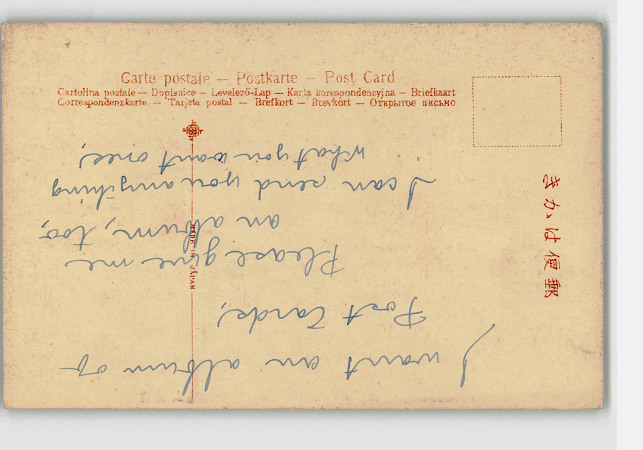 Carte postale — Postkarte — Post Card
Cartolina postale — Dopisnice — Levelező-Lap — Karta korespondencyjna — Briefkaart
Correspondenzkarte — Tarjeta postal — Brefkort — Brevkort — Открытое письмо
きかは便郵
MADE IN JAPAN
I want an album of
Post Cards,
Please give me
an album, too,
I can send you anything
what you want ones,